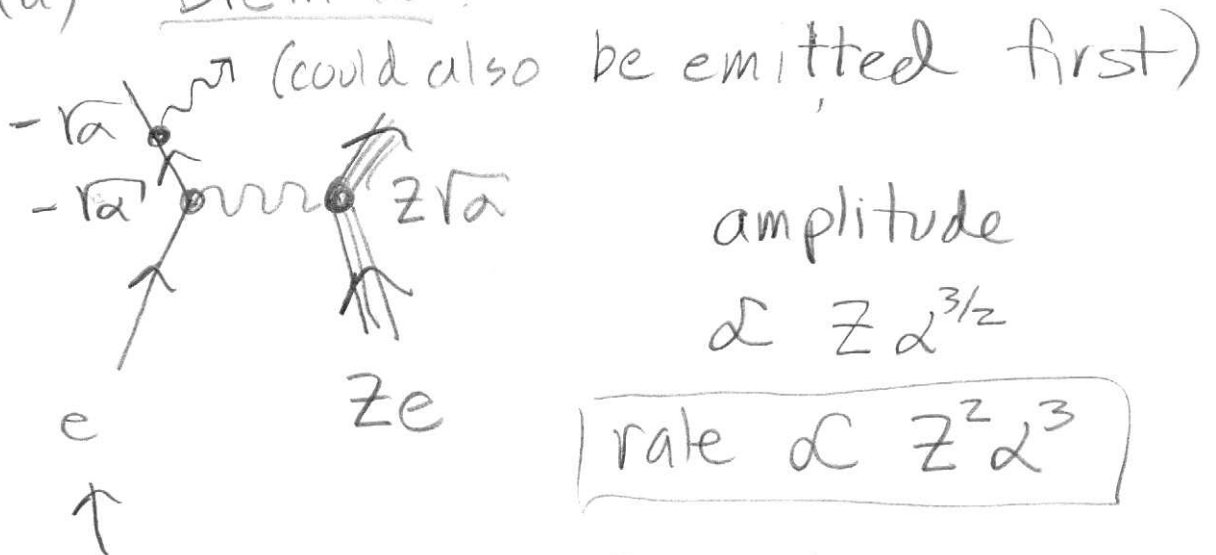 (could also be emitted first)
-√α
-√α
Z√α
amplitude
∝ Z α^3/2
e
Ze
rate ∝ Z²α³